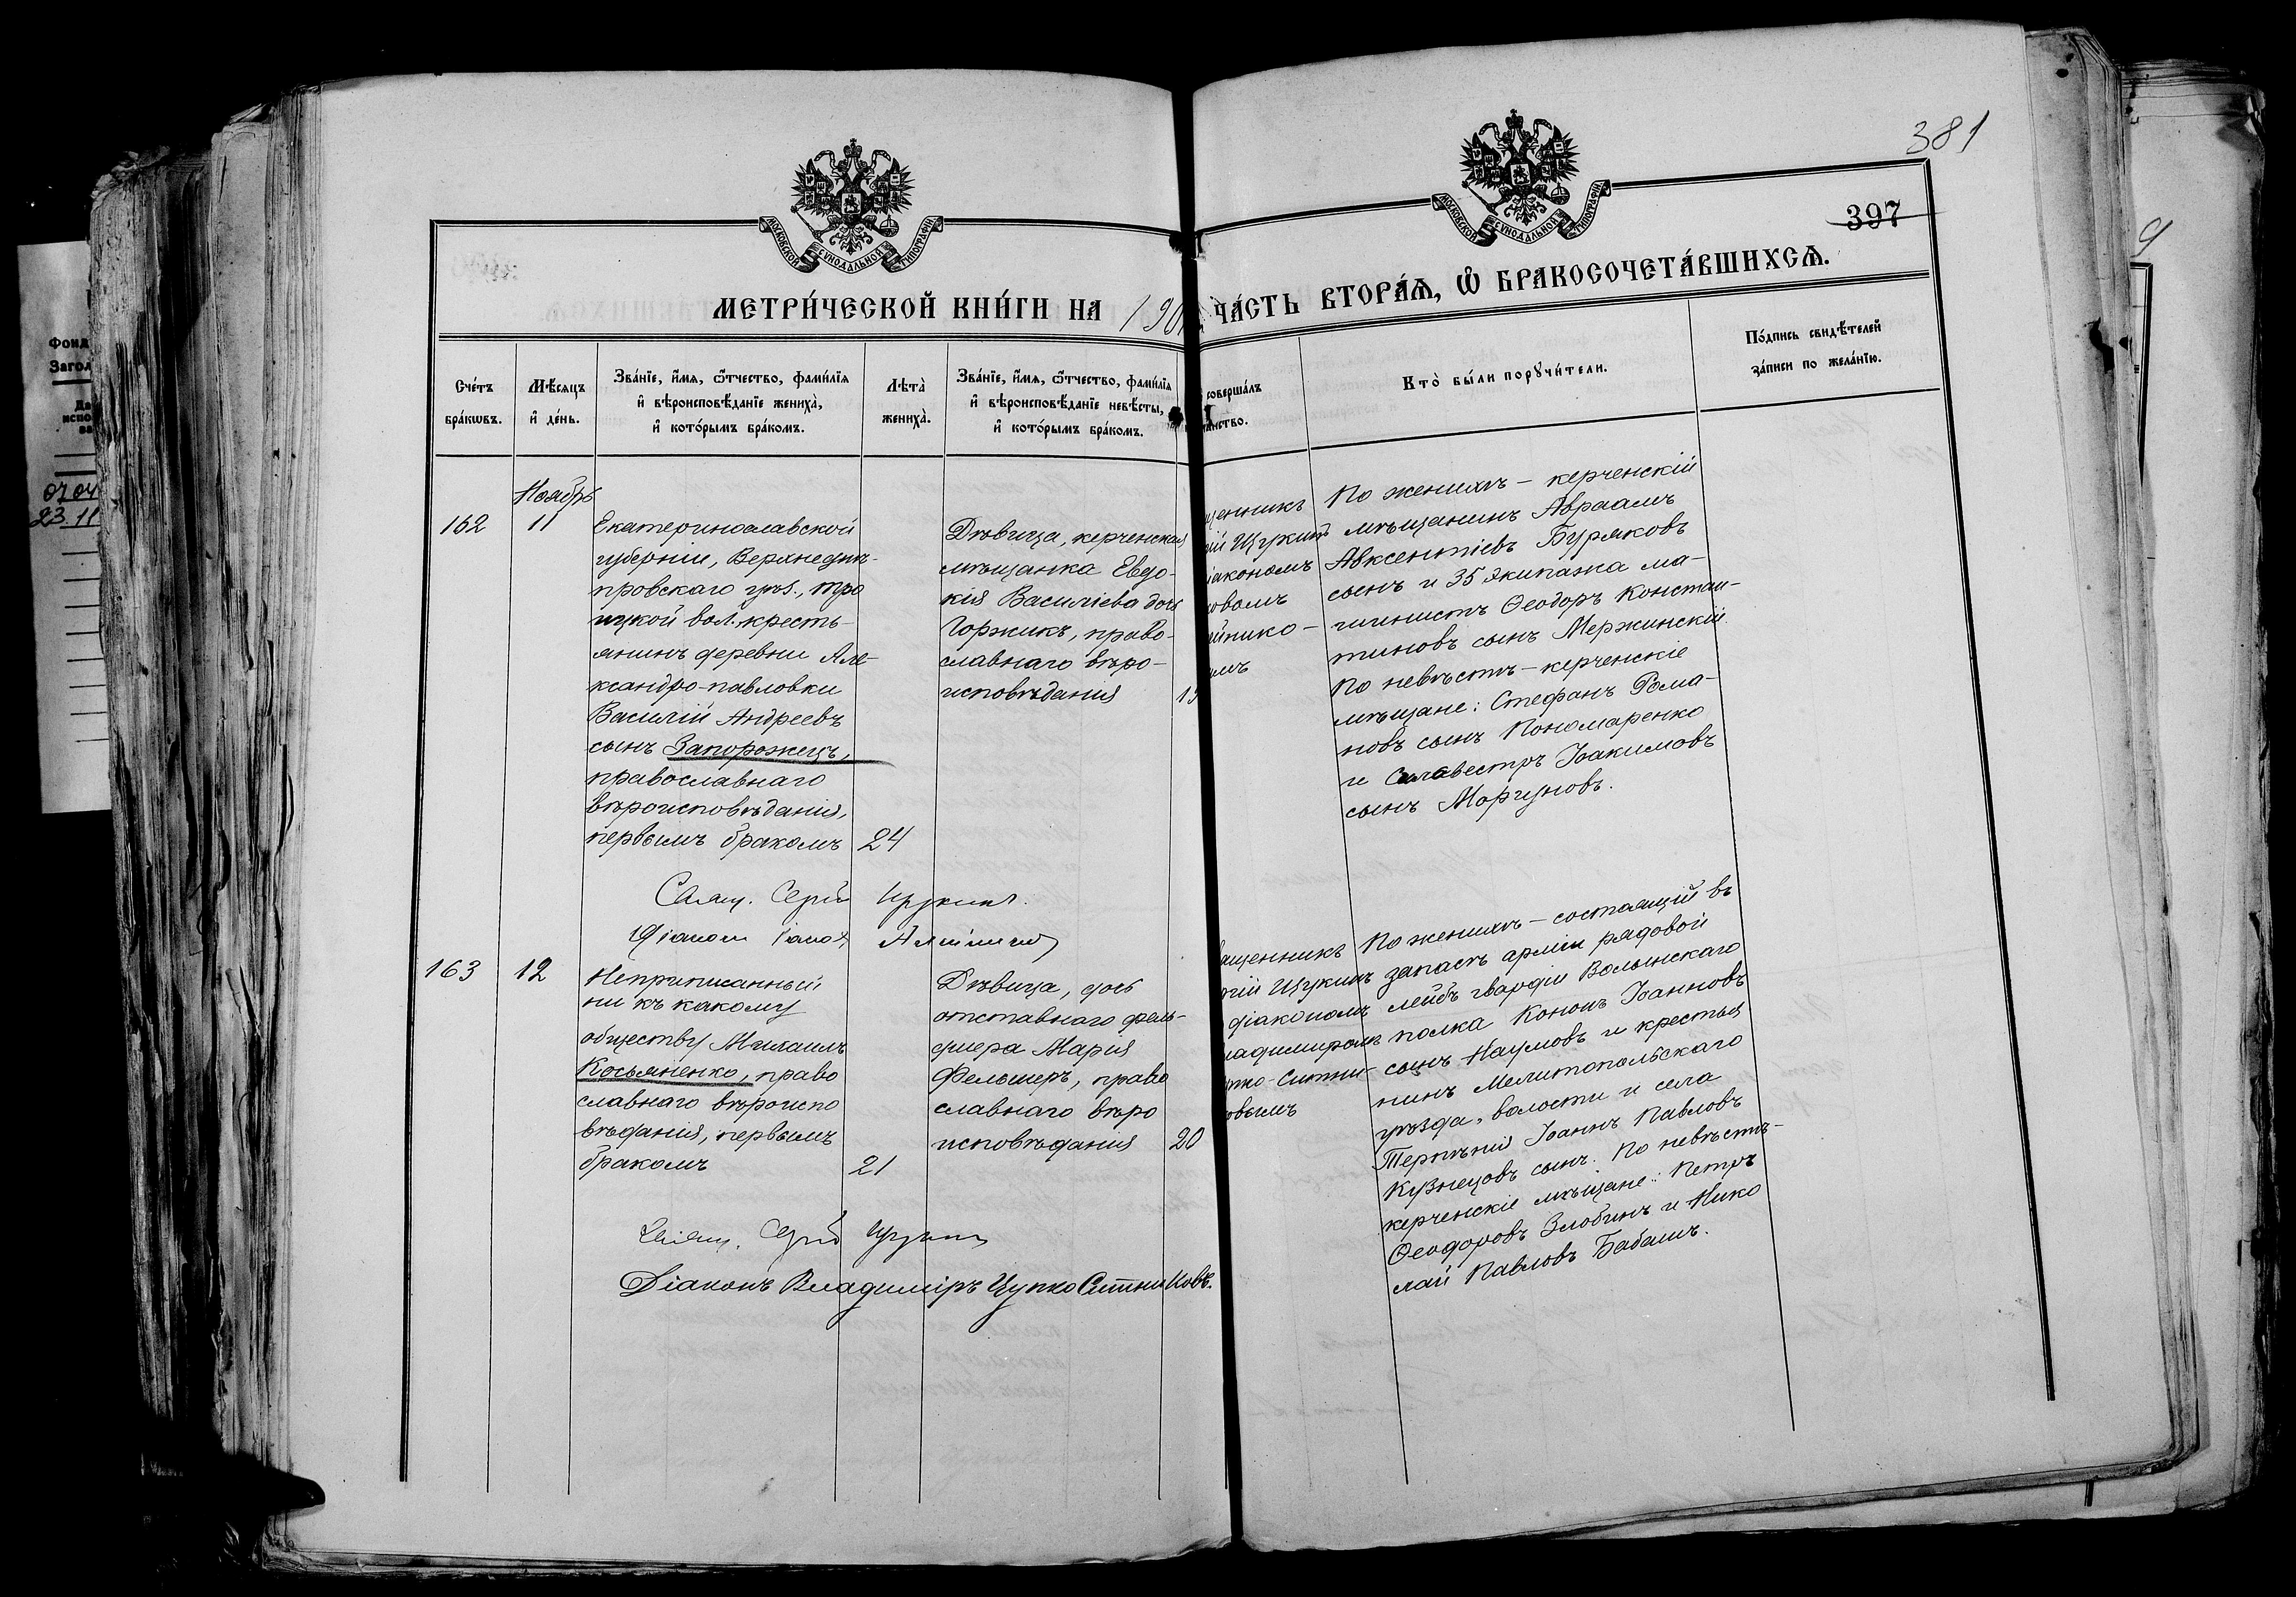 381
397
МОСКОВСКОЙ СѴНОДАЛЬНОЙ ТИПОГРАФІИ
МОСКОВСКОЙ СѴНОДАЛЬНОЙ ТИПОГРАФІИ
МЕТРИ́ЧЕСКОЙ КНИ́ГИ НА 190
ЧА́СТЬ ВТОРА́Ѧ, Ѡ҆ БРАКОСОЧЕТА́ВШИХСѦ.
Сче́тъ
бра́кѡвъ.
Мѣ́сѧцъ
и҆ де́нь.
Зва́нїе, и҆́мѧ, ѻ҆́тчество, фами́лїѧ
и҆ вѣроисповѣ́данїе жениха̀,
и҆ кото́рымъ бра́комъ.
Лѣта̀
жениха̀.
Зва́нїе, и҆́мѧ, ѻ҆́тчество, фами́лїѧ
и҆ вѣроисповѣ́данїе невѣ́сты,
и҆ кото́рымъ бра́комъ.
соверша́лъ
та́инство.
Кто̀ бы́ли порꙋчи́тели.
По́дпись свидѣ́телей
за́писи по жела́нїю.
Ноябрь
162
11
Екатеринославской
губерніи, Верхнеднѣ-
провскаго уѣз., Тро
ицкой вол. кресть-
янинъ деревни Але-
ксандро-павловки
Василій Андреевъ
сынъ Запорожецъ,
православнаго
вѣроисповѣданія,
первымъ бракомъ
24
Дѣвица, керченская
мѣщанка Евдо-
кія Василіева дочь
Горжикъ, право-
славнаго вѣро-
исповѣданія
19
щенникъ
ій Щукинъ
іакономъ
По женихѣ – керченскій
мѣщанинъ Авраамъ
Авксентіевъ Буряковъ
сынъ и 35 экипажа ма-
шинистъ Ѳеодоръ Констан-
тиновъ сынъ Мержинскій.
По невѣстѣ – керченскіе
мѣщане: Стефанъ Рома-
новъ сынъ Пономаренко
и Силвестръ Іоакимовъ
сынъ Моргуновъ.
Свящ. Сергій Щукинъ.
163
12
Неприписанный
ни къ какому
обществу Михаилъ
Косьяненко, право
славнаго вѣроиспо
вѣданія, первымъ
бракомъ
21
Дѣвица, дочь
отставнаго фель-
дшера Марія
Фельшеръ, право
славнаго вѣро
исповѣданія
20
ященникъ
гій Щукинъ
діакономъ
ладиміромъ
пко-Ситни-
овымъ
По женихѣ – состоящій въ
запасѣ арміи рядовой
лейбъ гвардіи Волынскаго
полка Кононъ Іоанновъ
сынъ Наумовъ и крестья
нинъ Мелитопольскаго
уѣзда, волости и села
Терпѣнія Іоаннъ Павловъ
Кузнецовъ сынъ. По невѣстѣ-
керченскіе мѣщане: Петръ
Ѳеодоровъ Злобинъ и Нико
лай Павловъ Бабашъ.
Свящ. Сергій Щукинъ
Діаконъ Владиміръ Цупко Ситниковъ.
Фонд
Загол
07 04
23.11
9